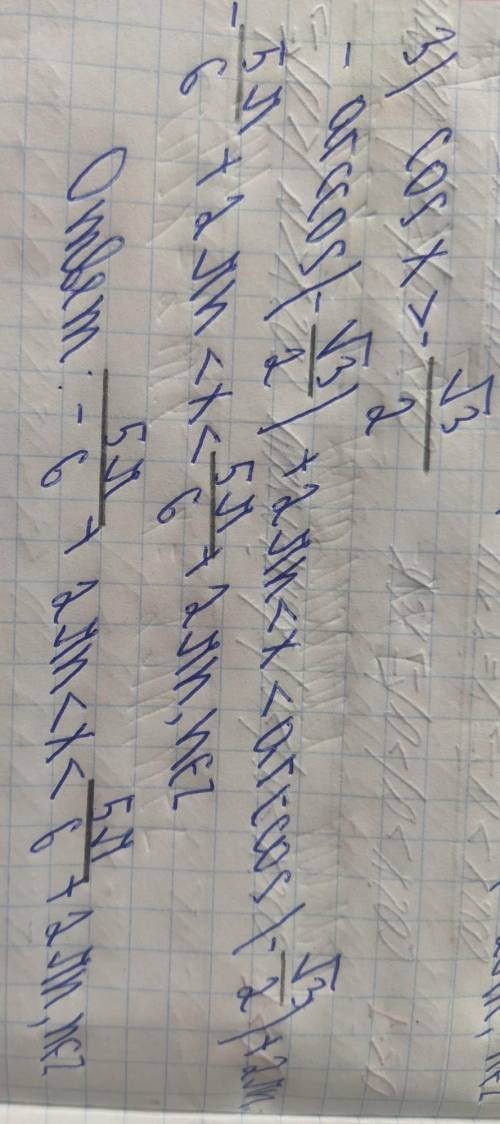 3) cos x > -√3/2
- arccos(-√3/2) + 2πn < x < arccos(-√3/2) + 2πn
- 5π/6 + 2πn < x < 5π/6 + 2πn, n∈Z
Ответ: - 5π/6 + 2πn < x < 5π/6 + 2πn, n∈Z